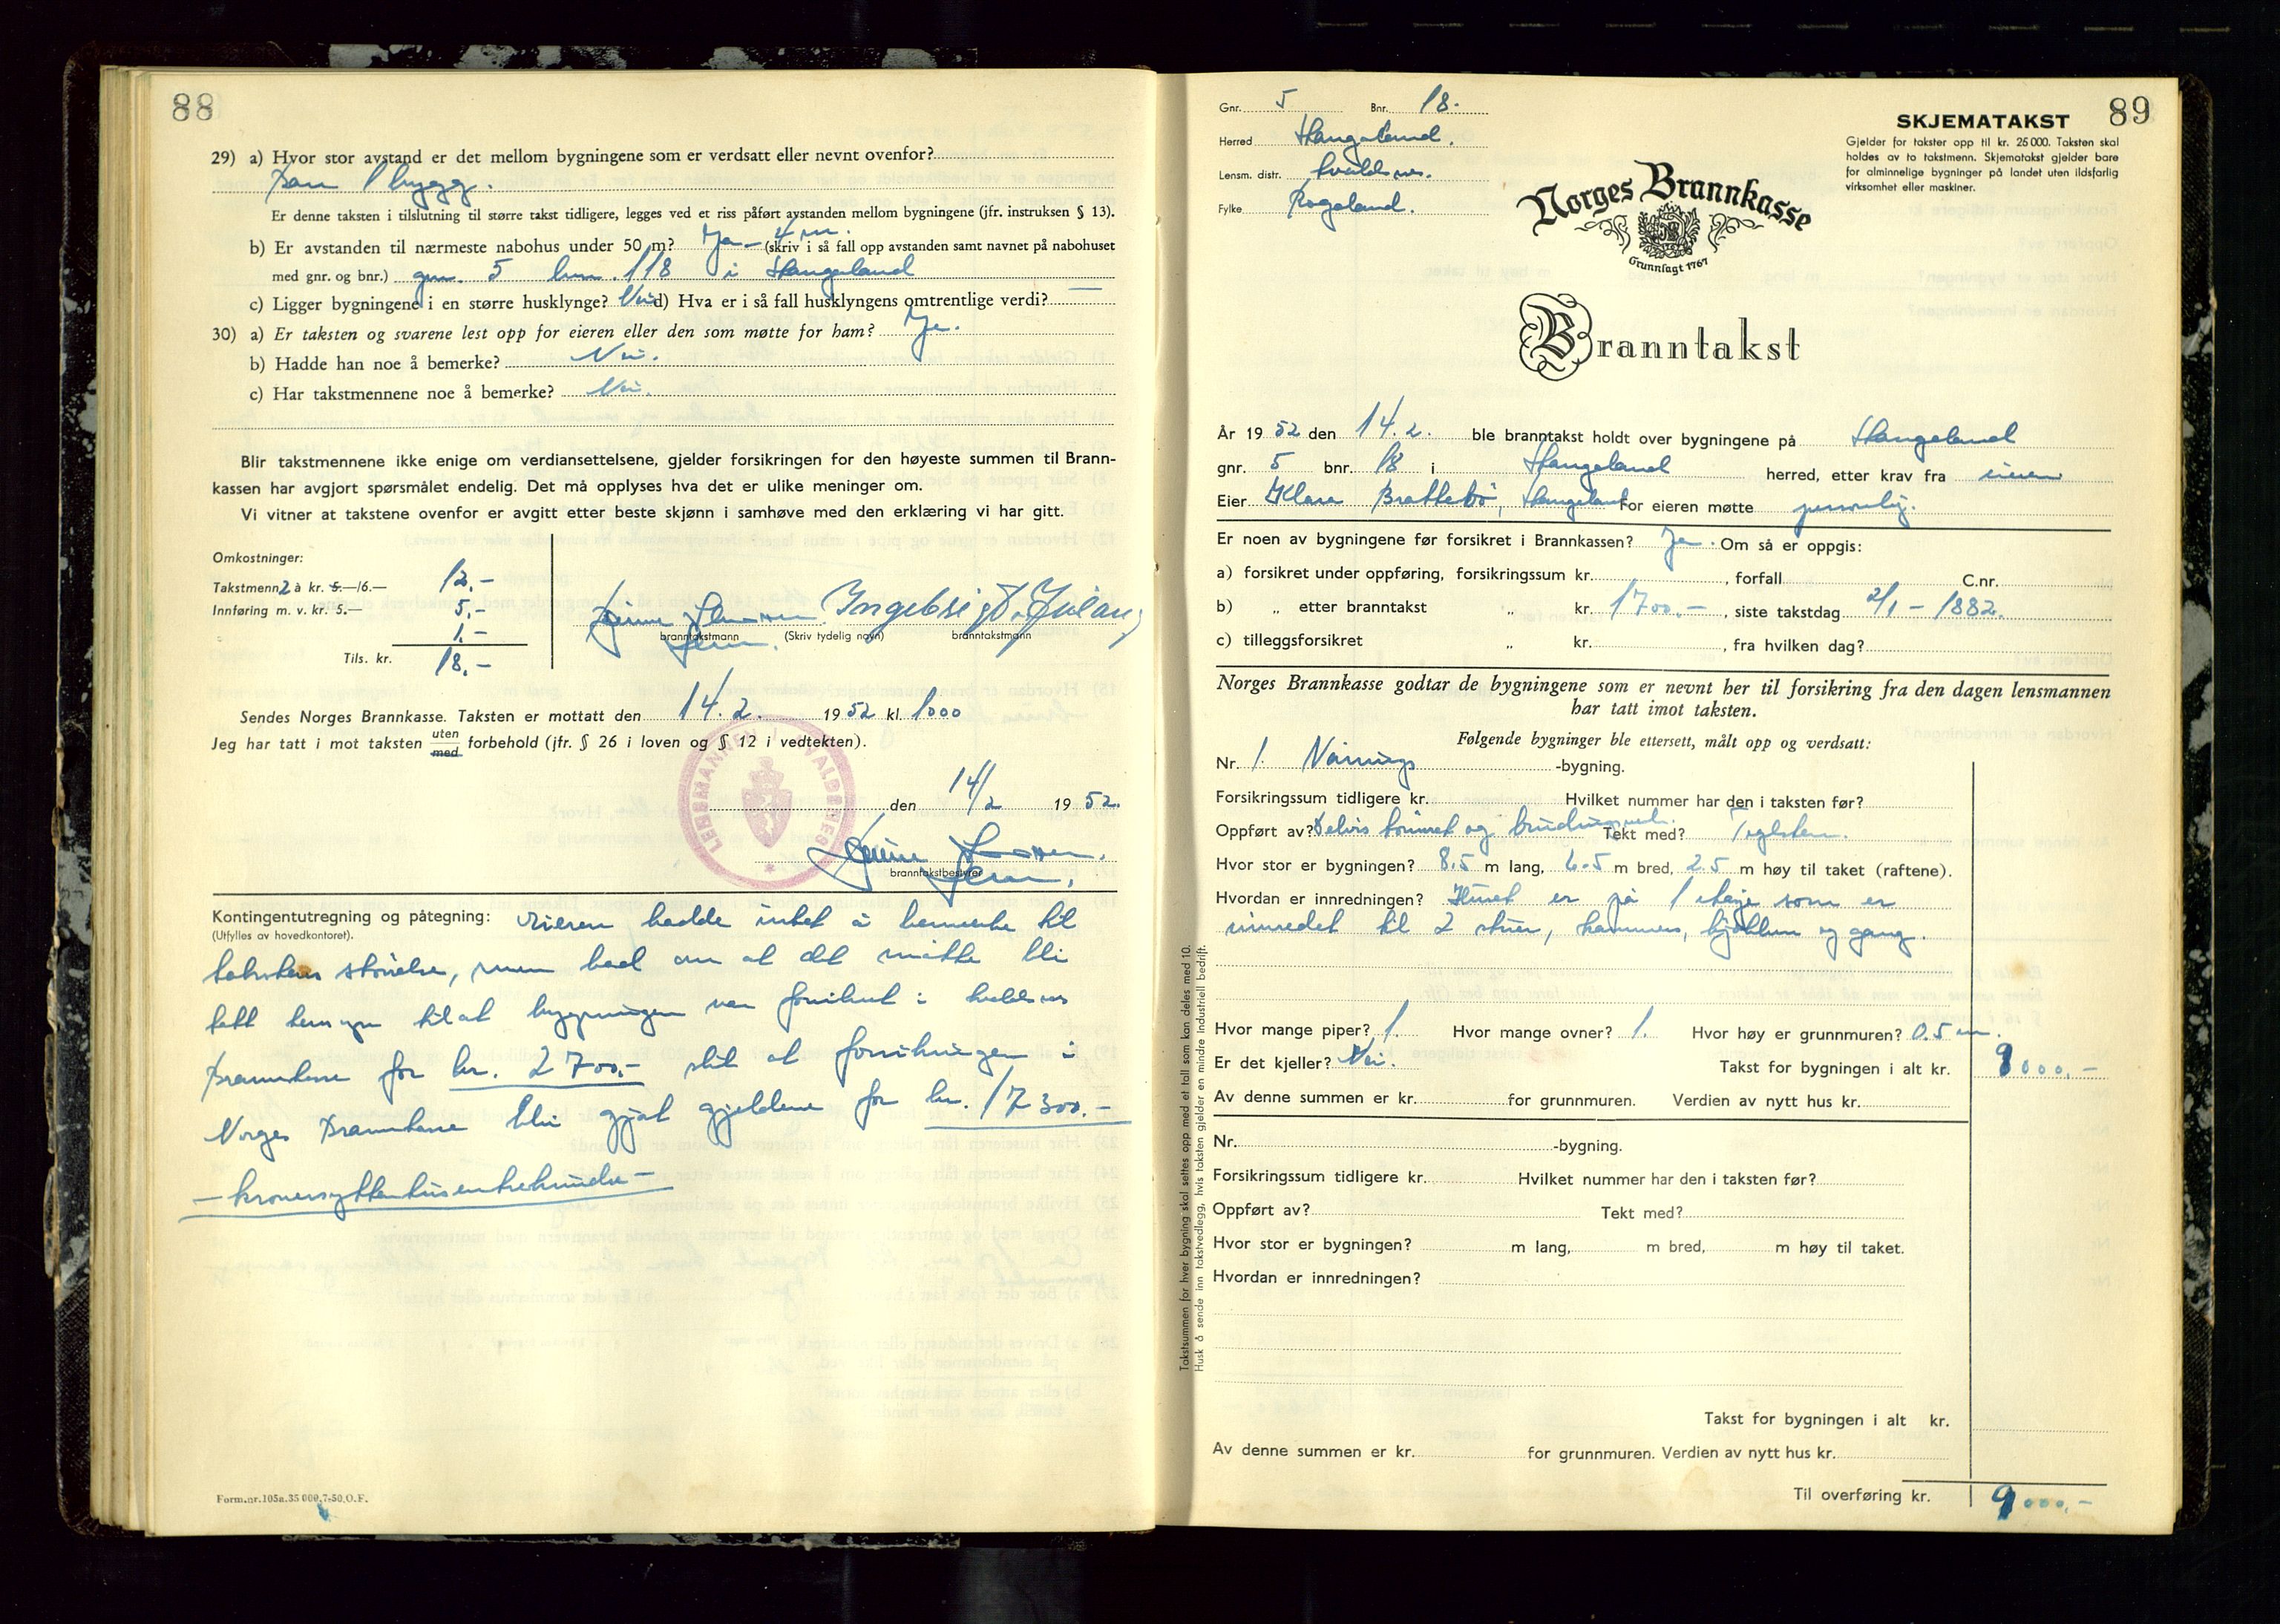 88
29) a) Hvor stor avstand er det mellom bygningene som er verdsatt eller nevnt ovenfor?
Bare 1 bygg.
Er denne taksten i tilslutning til større takst tidligere, legges ved et riss påført avstanden mellom bygningene (jfr. instruksen § 13).
b) Er avstanden til nærmeste nabohus under 50 m? Ja - 4 m. (skriv i så fall opp avstanden samt navnet på nabohuset
med gnr. og bnr.) gnr. 5 bnr. 118 i Haugeland
c) Ligger bygningene i en større husklynge? Nei d) Hva er i så fall husklyngens omtrentlige verdi? —
30) a) Er taksten og svarene lest opp for eieren eller den som møtte for ham? Ja.
b) Hadde han noe å bemerke? Nei.
c) Har takstmennene noe å bemerke? Nei.
Blir takstmennene ikke enige om verdiansettelsene, gjelder forsikringen for den høyeste summen til Brann-
kassen har avgjort spørsmålet endelig. Det må opplyses hva det er ulike meninger om.
Vi vitner at takstene ovenfor er avgitt etter beste skjønn i samhøve med den erklæring vi har gitt.
Omkostninger:
Takstmenn 2 à kr. 5.—/6.— 12.-
Innføring m. v. kr. 5.— 5.-
1.-
Tils. kr. 18.-
Ingebrigt
branntakstmann (Skriv tydelig navn) branntakstmann
Sendes Norges Brannkasse. Taksten er mottatt den 14.2. 1952 kl. 1000
Jeg har tatt i mot taksten uten
med forbehold (jfr. § 26 i loven og § 12 i vedtekten).
LENSMANNEN I AVALDSNES
den 14/2 1952.
branntakstbestyrer
Kontingentutregning og påtegning: Eieren hadde intet å bemerke til
(Utfylles av hovedkontoret).
takstens størrelse, men bad om at det måtte bli
tatt hensyn til at bygningen var forsikret i Avaldsnes
Brannkasse for kr. 2700.- slik at forsikringen i
Norges Brannkasse blir gjort gjeldene for kr. 17300.-
- kronersyttentusentrehundre -
Form.nr.105a.35 000.7-50.O.F.
89
Gnr. 5 Bnr. 18.
Herred Haugeland.
Lensm. distr. Avaldsnes.
Fylke Rogaland.
SKJEMATAKST
Gjelder for takster opp til kr. 25 000. Taksten skal
holdes av to takstmenn. Skjematakst gjelder bare
for alminnelige bygninger på landet uten ildsfarlig
virksomhet eller maskiner.
Norges Brannkasse
Grunnlagt 1767
Branntakst
År 1952 den 14.2. ble branntakst holdt over bygningene på Haugeland
gnr. 5 bnr. 18 i Haugeland herred, etter krav fra eieren
Eier Klara Brattebø, Haugeland For eieren møtte personlig.
Er noen av bygningene før forsikret i Brannkassen? Ja. Om så er oppgis:
a) forsikret under oppføring, forsikringssum kr. , forfall C.nr.
b) „ etter branntakst „ kr. 1700.- , siste takstdag 2/1 - 1882.
c) tilleggsforsikret „ kr. , fra hvilken dag?
Norges Brannkasse godtar de bygningene som er nevnt her til forsikring fra den dagen lensmannen
har tatt imot taksten.
Følgende bygninger ble ettersett, målt opp og verdsatt:
Nr. 1. Vånings -bygning.
Forsikringssum tidligere kr. Hvilket nummer har den i taksten før?
Oppført av? Delvis tømret og bindingsverk. Tekt med? Teglsten.
Hvor stor er bygningen? 8.5 m lang, 6.5 m bred, 2.5 m høy til taket (raftene).
Hvordan er innredningen? Huset er på 1 etasje som er
innredet til 2 stuer, kammers, kjøkken og gang.
Hvor mange piper? 1. Hvor mange ovner? 1. Hvor høy er grunnmuren? 0.5 m.
Er det kjeller? Nei. Takst for bygningen i alt kr. 9000.-
Av denne summen er kr. for grunnmuren. Verdien av nytt hus kr.
Nr. -bygning.
Forsikringssum tidligere kr. Hvilket nummer har den i taksten før?
Oppført av? Tekt med?
Hvor stor er bygningen? m lang, m bred, m høy til taket.
Hvordan er innredningen?
Takst for bygningen i alt kr.
Av denne summen er kr. for grunnmuren. Verdien av nytt hus kr.
Til overføring kr. 9000.-
Takstsummen for hver bygning skal settes opp med et tall som kan deles med 10.
Husk å sende inn takstvedlegg, hvis taksten gjelder en mindre industriell bedrift.